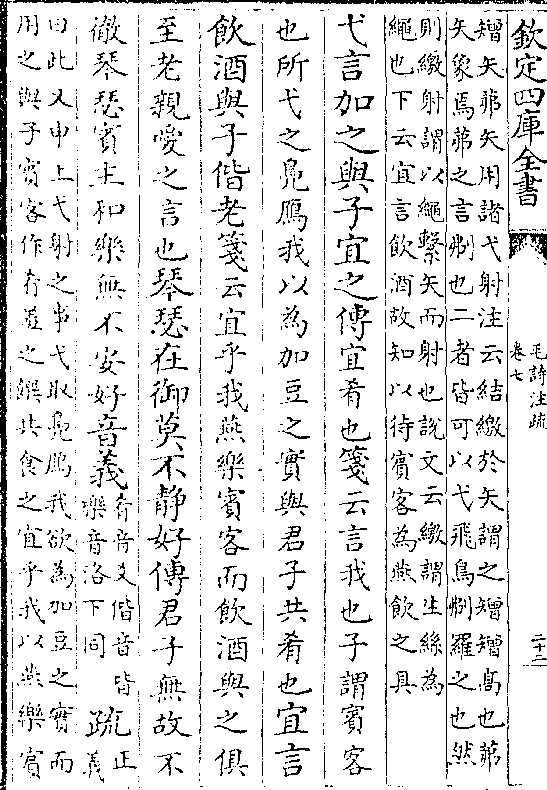 欽定四庫全書
毛詩注疏
卷七
二十二
矰矢茀矢用諸弋射注云結繳於矢謂之矰矰高也茀
矢象焉茀之言刜也二者皆可以弋飛鳥刜羅之也然
則繳射謂以繩繫矢而射也說文云繳謂生絲為
繩也下云宜言飲酒故知以待賓客為燕飲之具
弋言加之與子宜之傳宜肴也箋云言我也子謂賓客
也所弋之鳧鴈我以為加豆之實與君子共肴也宜言
飲酒與子偕老箋云宜乎我燕樂賓客而飲酒與之俱
至老親愛之言也琴瑟在御莫不静好傳君子無故不
徹琴瑟賓主和樂無不安好音義肴音爻偕音皆樂音洛下同疏正義
曰此又申上弋射之事弋取鳧鴈我欲為加豆之實而
用之與子賓客作肴羞之饌共食之宜乎我以燕樂賓